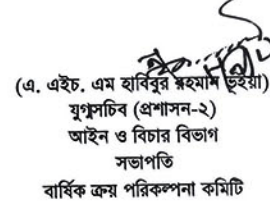 (এ. এইচ. এম হাবিবুর রহমান ভূইয়া)
যুগ্মসচিব (প্রশাসন-২)
আইন ও বিচার বিভাগ
সভাপতি
বার্ষিক ক্রয় পরিকল্পনা কমিটি